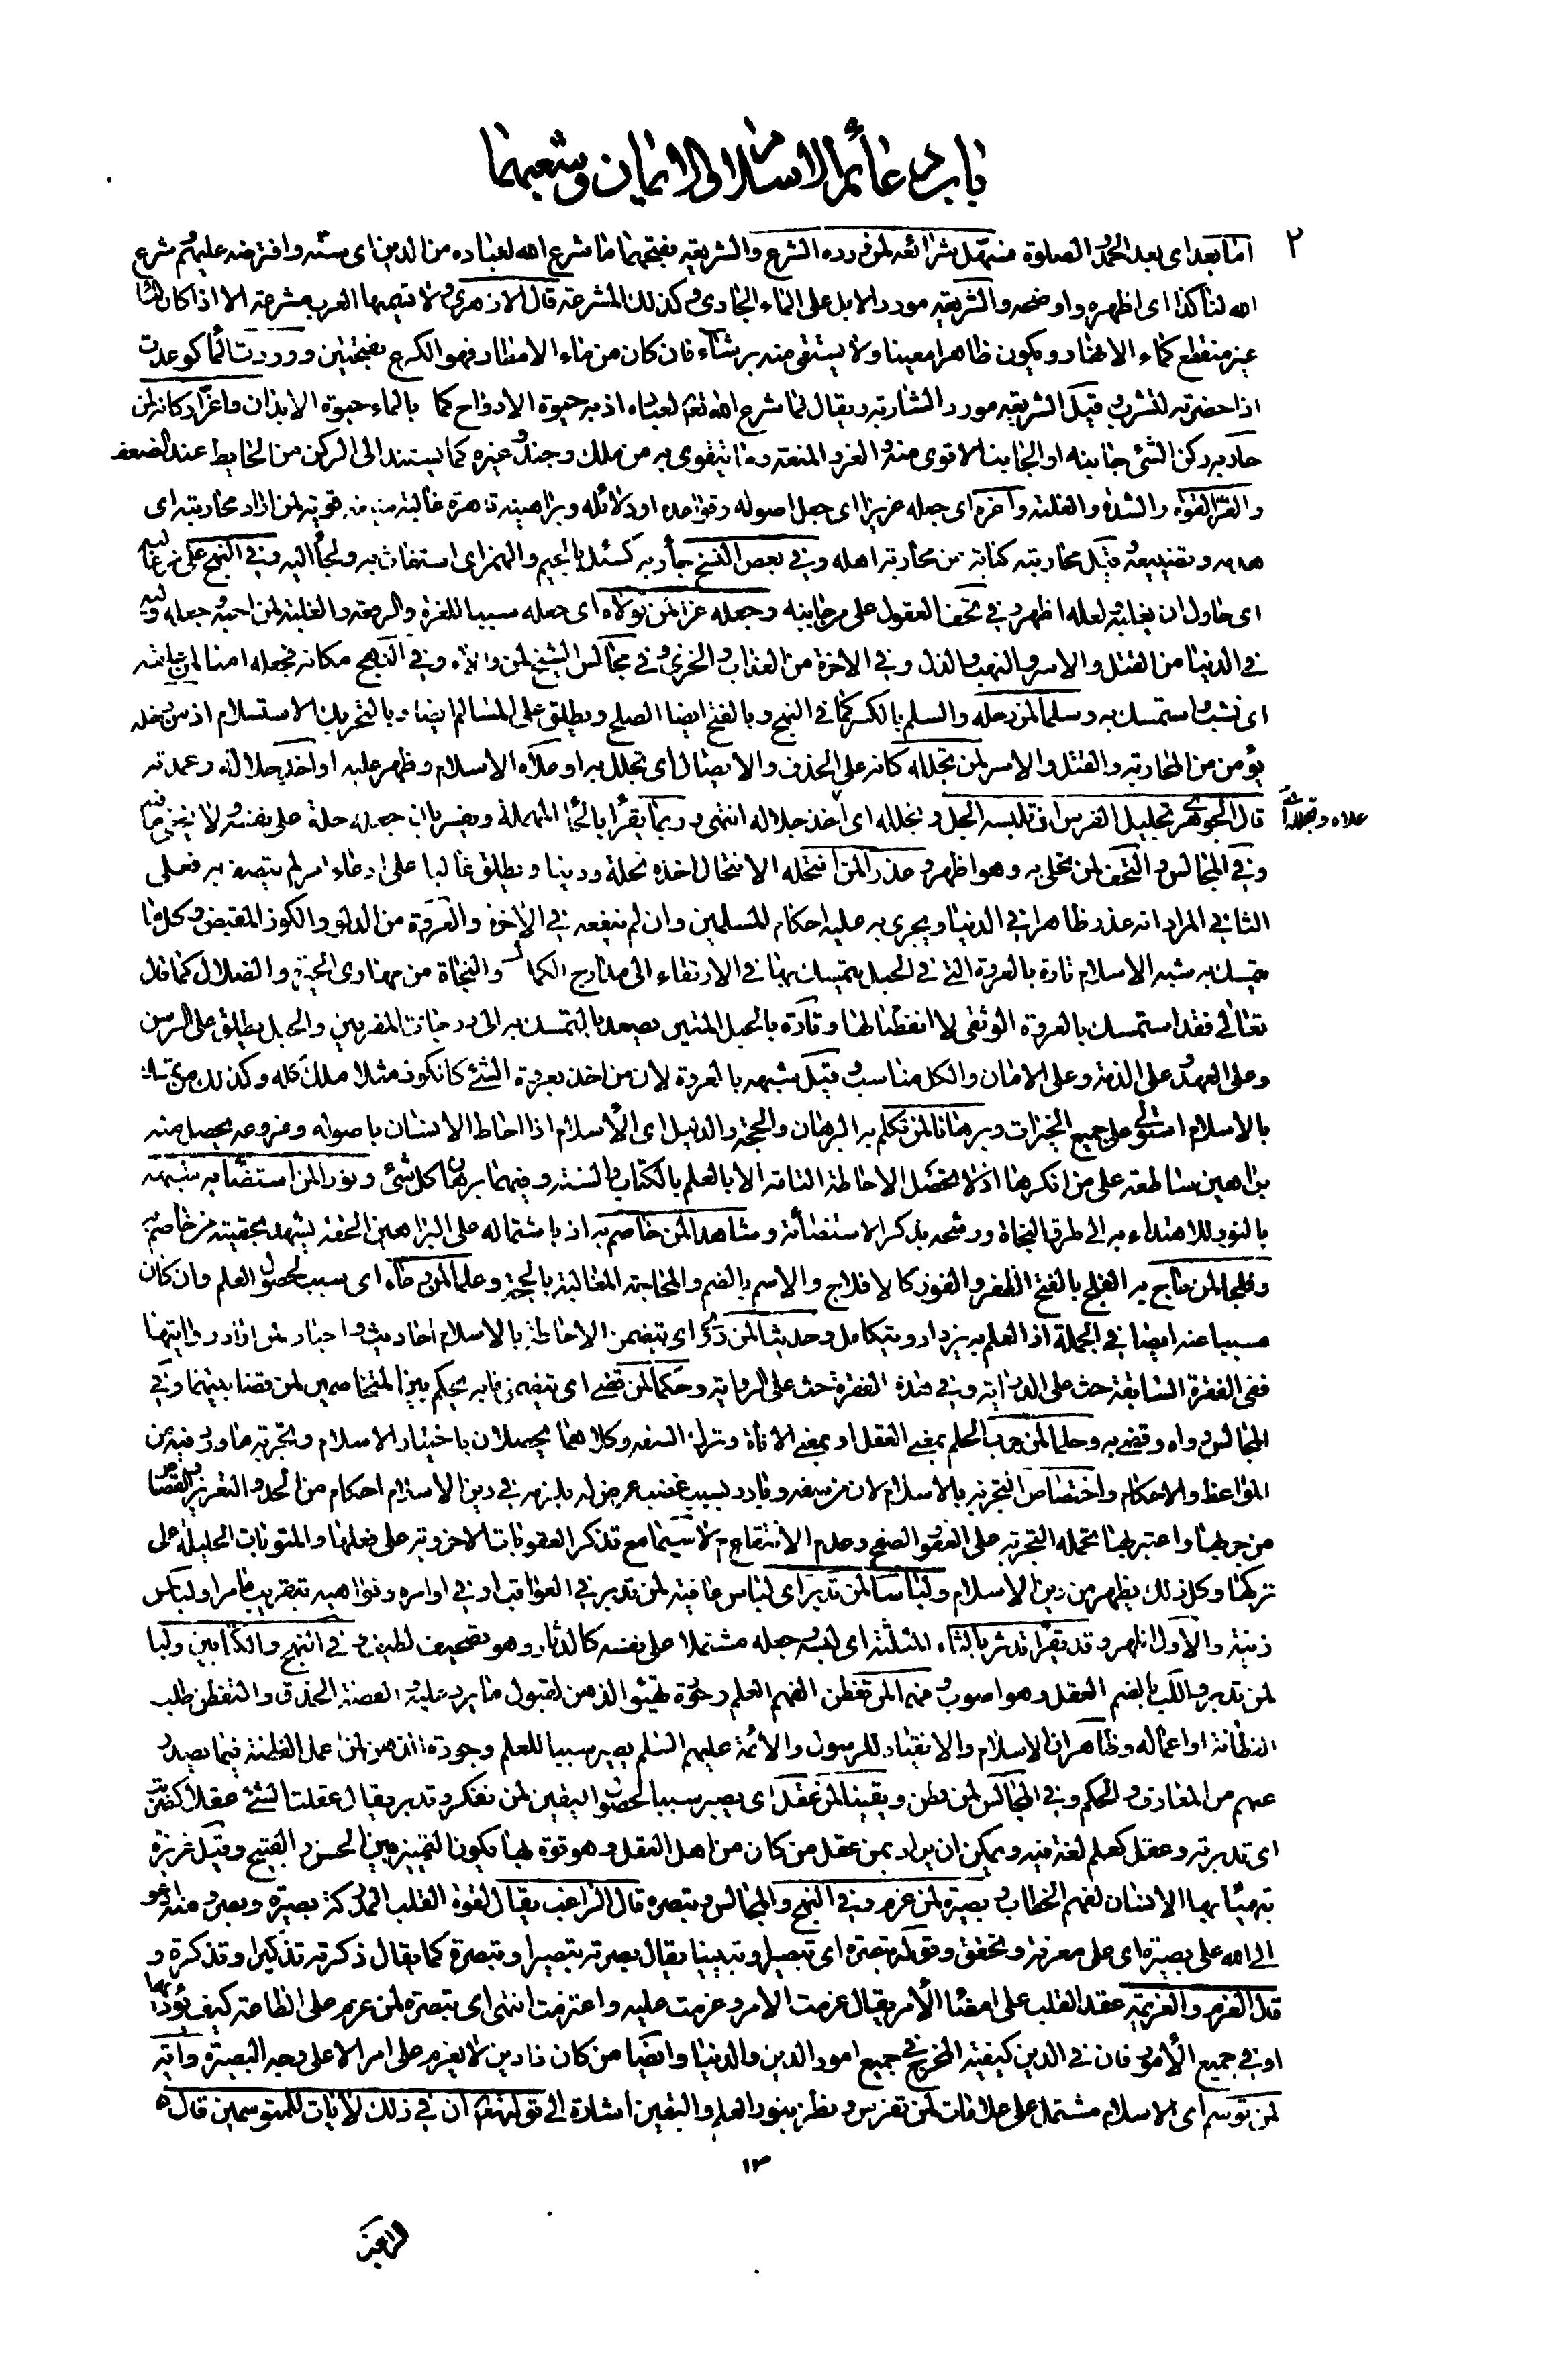 باب دعائم الاسلام والايمان وشعبهما
٢ اما بعد اى بعد الحمد والصلوة فسهل شرائعه لمن ورده الشرع والشريعة بفتحهما ما شرع الله لعباده من الدين اى سنه وافترضه عليهم شرع
الله لنا كذا اى اظهره واوضحه والشريعة مورد الابل على الماء الجارى وكذلك المشرعة قال الازهرى ولا تسميها العرب مشرعة الا اذا كان الماء
غير منقطع كماء الانهار ويكون ظاهرا معينا ولا يستقى منه برشاء فان كان من ماء الامطار فهو الكرع بفتحتين ووردت الماء كوعدت
اذا حضرته لتشرب وقيل الشريعة مورد الشاربة ويقال لما شرع الله تعم لعباده اذ به حيوة الارواح كما بالماء حيوة الابدان واعز اركانه لمن
حاربه ركن الشئ جانبه او الجانب الاقوى منه والعز والمنعة وما يتقوى به من ملك وجند وغيره كما يستند الى الركن من الحايط عند الضعف
والعز القوة والشدة والغلبة واعزه اى جعله عزيزا اى جعل اصوله وقواعده او دلائله وبراهينه قاهرة غالبة قوية لمن اراد محاربته اى
هدمه وتضييعه وقيل محاربته كناية عن محاربة اهله وفى بعض النسخ جأر به كسئل بالجيم والهمز اى استغاث به ولجأ اليه وفى النهج على من غالبه
اى حاول ان يغلبه ولعله اظهر وفى تحف العقول على من جانبه وجعله عزا لمن تولاه اى جعله سببا للعزة والرفعة والغلبة لمن احبه وجعله وليه
فى الدنيا من القتل والاسر والنهب والذل وفى الاخرة من العذاب والخزى وفى مجالس الشيخ لمن والاه وفى النهج مكانه فجعله امنا لمن علقه
اى نشب واستمسك به وسلما لمن دخله والسلم بالكسر كما فى النهج وبالفتح ايضا الصلح ويطلق على المسالم ايضا وبالتحريك الاستسلام اذ من دخله
يؤمن من المحاربة والقتل والاسر لمن تجلله كانه على الحذف والايصال اى تجلل به او علاه الاسلام وظهر عليه او اخذ جلاله وعمدته
قال الجوهرى تجليل الفرس ان تلبسه الجل وتجلله اى علاه وتجلله اى اخذ جلاله انتهى وربما يقرأ بالحاء المهملة ويفسر بان جعله حلة على نفسه ولا يخفى ما فيه
وفى المجالس والتحف لمن تحلى به وهو اظهر وعذرا لمن انتحله الانتحال اخذه نحلة ودينا ويطلق غالبا على ادعاء امر لم يتصف به فعلى
الثانى المراد انه عذر ظاهرا فى الدنيا ويجرى به عليه احكام المسلمين وان لم ينفعه فى الاخرة والعروة من الدلو والكوز المقبض وكل ما
يتمسك به شبه الاسلام تارة بالعروة التى فى الحبل يتمسك بها فى الارتقاء الى مدارج الكمال والنجاة من مهاوى الحيرة والضلال كما قال
تعالى فقد استمسك بالعروة الوثقى لا انفصام لها وتارة بالحبل المتين يصعد بالتمسك به الى درجات المقربين والحبل يطلق على الرسن
وعلى العهد وعلى الذمة وعلى الامان والكل مناسب وقيل شبهه بالعروة لان من اخذ بعروة الشئ كالكوز مثلا ملك كله وكذلك من تمسك
بالاسلام استولى على جميع الخيرات وبرهانا لمن تكلم به البرهان والحجة والدليل اى الاسلام اذا احاط الانسان باصوله وفروعه يحصل منه
براهين ساطعة على من انكرها اذ لا تحصل الاحاطة التامة الا بالعلم بالكتاب والسنة وفيهما برهان كل شئ ونورا لمن استضاء به شبهه
بالنور للاهتداء به الى طرق النجاة ورشحه بذكر الاستضاءة وشاهدا لمن خاصم به اذ باشتماله على البراهين الحقة يشهد بحقيته من خاصم به
وفلجا لمن حاج به الفلج بالفتح الظفر والفوز كالافلاج والاسم بالضم والمحاجة المغالبة بالحجة وعلما لمن وعاه اى سبب لحصول العلم وان كان
مسببا عنه ايضا فى الجملة اذ العلم به يزداد ويتكامل وحديثا لمن روى اى يتضمن الاحاطة بالاسلام احاديث واخبار لمن اراد روايتها
ففى الفقرة السابقة حث على الدراية وفى هذه الفقرة حث على الرواية وحكما لمن قضى اى يتضمن ما به يحكم بين المتخاصمين لمن قضا بينهما وفى
المجالس رواه وقضى به وحلما لمن جرب الحلم بمعنى العقل او بمعنى الاناة وترك السفه وكلاهما يحصلان باختيار الاسلام وتجربة ما ورد فيه من
المواعظ والاحكام واختصاص التجربة بالاسلام لان من سفه وبادر بسبب غضب عرض له يلزمه فى دين الاسلام احكام من الحد والتعزير والقصاص
من جربها واعتبر بها تحمله التجربة على العفو والصفح وعدم الانتقام لا سيما مع تذكر العقوبات الاخروية على فعلها والمثوبات الجليلة على
تركها وكل ذلك يظهر من دين الاسلام ولباسا لمن تدبر اى لباس عافية لمن تدبر فى العواقب او فى اوامره ونواهيه بتقريب ما مر او لباس
زينة والاول اظهر وقد يقرأ تدثر بالثاء المثلثة اى لبسه وجعله مشتملا على نفسه كالدثار وهو تصحيف لطيف وفى النهج والكتابين ولبا
لمن تدبر واللب بالضم العقل وهو اصوب وفهما لمن تفطن الفهم العلم وجودة تهيئو الذهن لقبول ما يرد عليه والفطنة الحذق والتفطن طلب
الفطانة او اعماله وظاهر ان الاسلام والانقياد للرسول والائمة عليهم السلم يصير سببا للعلم وجودة الذهن لمن اعمل الفطنة فيما يصدر
عنهم من المعارف والحكم وفى المجالس لمن فطن ويقينا لمن عقل اى يصير سببا لحصول اليقين لمن تفكر وتدبر يقال عقلت الشئ عقلا كضربت
اى تدبرته وعقل كعلم لغة فيه ويمكن ان يراد بمن عقل من كان من اهل العقل وهو قوة بها يكون التمييز بين الحسن والقبيح وقيل غريزة
يتهيئا بها الانسان لفهم الخطاب وبصيرة لمن عزم وفى النهج والمجالس وتبصرة قال الراغب يقال لقوة القلب المدركة بصيرة وبصر ومنه ادعو
الى الله على بصيرة اى على معرفة وتحقق وقوله تبصرة اى تبصيرا وتبيينا يقال بصرته تبصيرا وتبصرة كما يقال ذكرته تذكيرا وتذكرة و
قال العزم والعزيمة عقد القلب على امضاء الأمر يقال عزمت الامر وعزمت عليه واعتزمت انتهى اى تبصرة لمن عزم على الطاعة كيف يؤديها
او فى جميع الأمور فان فى الدين كيفية المخرج فى جميع امور الدين والدنيا وايضا من كان ذا دين لا يعزم على امر الا على وجه البصيرة وآية
لمن توسم اى الاسلام مشتمل على علامات لمن تفرس ونظر بنور العلم واليقين اشارة الى قوله تعم ان فى ذلك لآيات للمتوسمين قال
١٣
الراغب